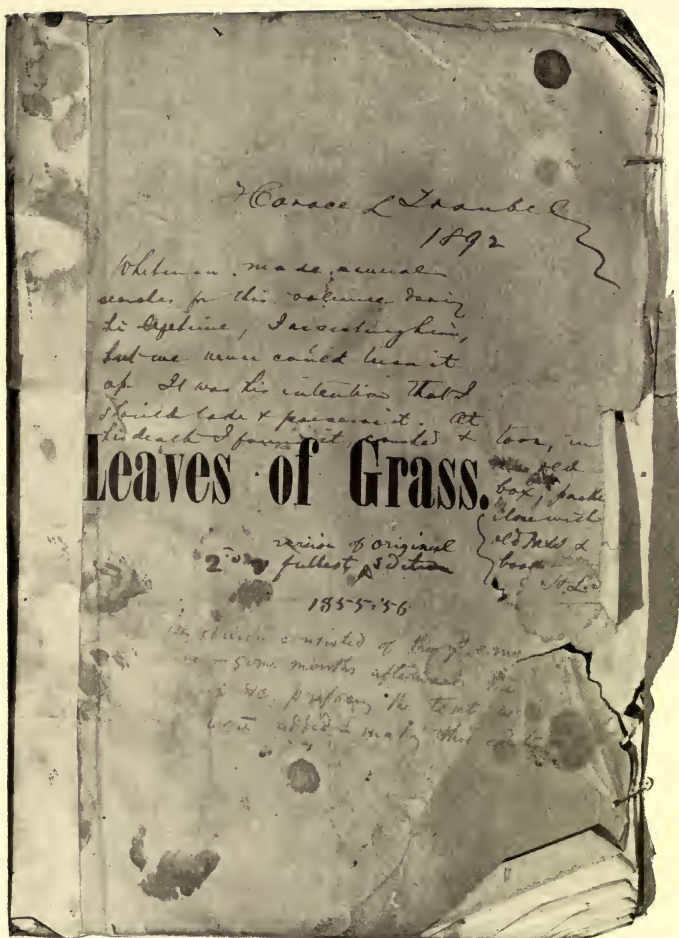 Horace L Traubel
1892
Whitman made several
searches for this volume during
his lifetime, I assisting him,
but we never could turn it
up. It was his intention that I
should take & possess it. At
his death I found it, & torn, in
old
box, packed
close with
old MSS &
books
Leaves of Grass.
2nd version of original
fullest Edition
1855-'56
edition consisted of
some months afterwards the
& the prefacing the text
were added in making this edition